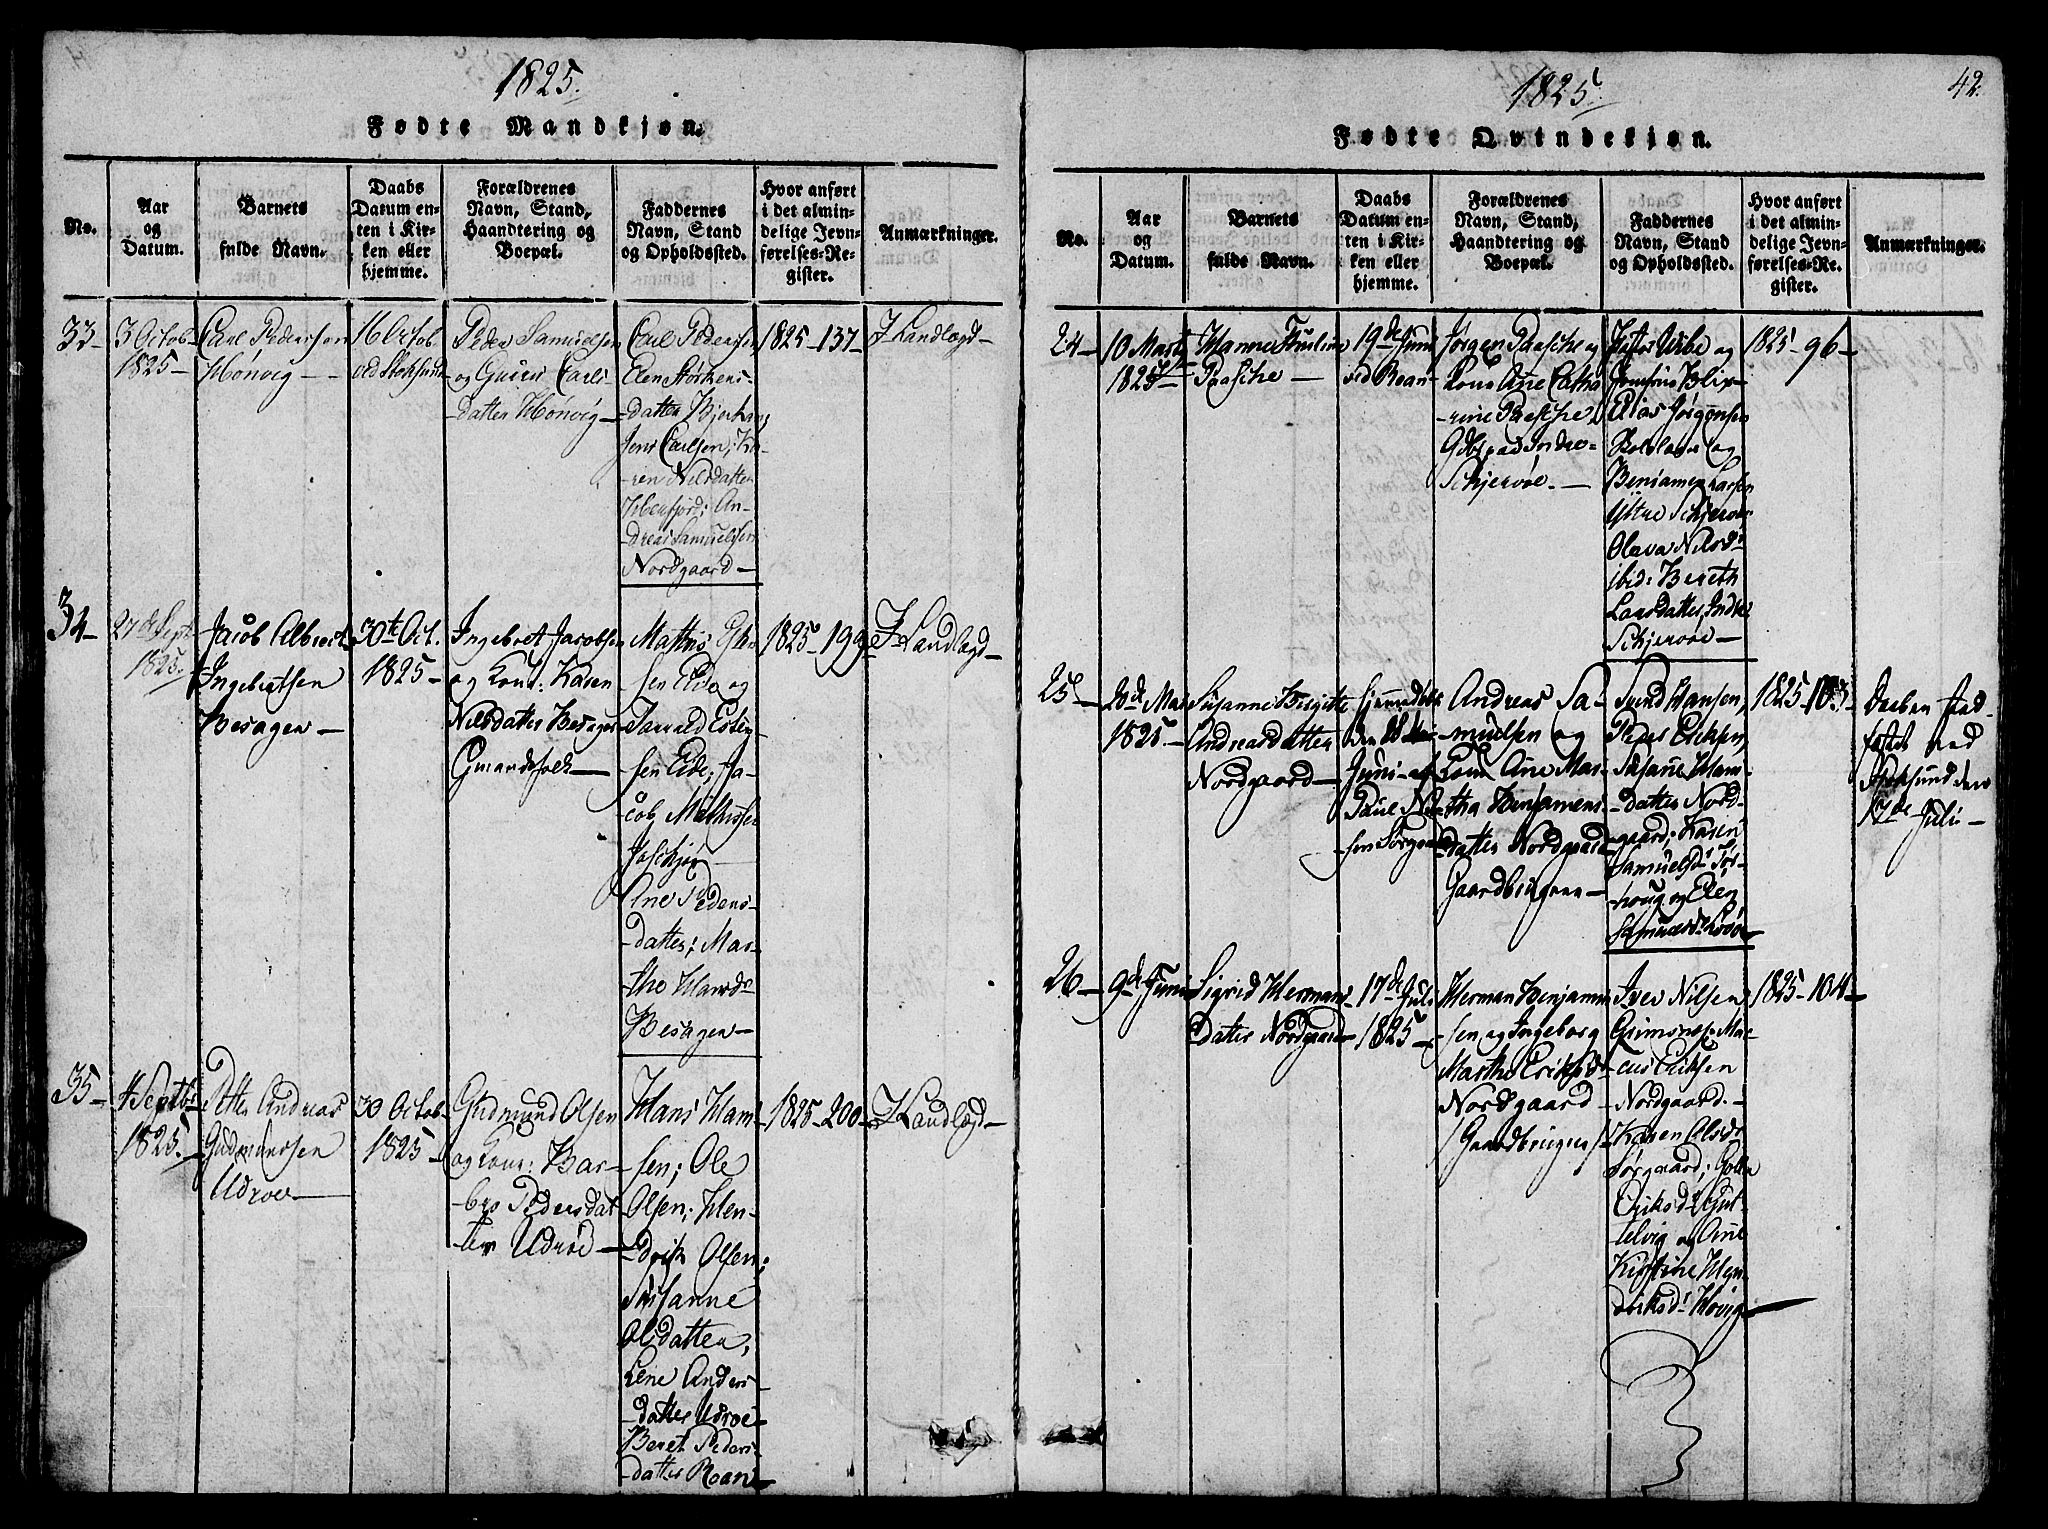 1825.
Fødte Mandkjøn.
No.
Aar
og
Datum.
Barnets
fulde Navn.
Daabs
Datum en-
ten i Kir-
ken eller
hjemme.
Forældrenes
Navn, Stand,
Haandtering og
Boepæl.
Faddernes
Navn, Stand
og Opholdssted.
Hvor anført
i det almin-
delige Jevn-
førelses-Re-
gister.
Anmærkninger.
33-
3 Octob-
1825-
Carl Pedersen
Hönvig -
16 Octob
ved Stoksund
Peder Samuelsen
og Guren Carls-
datter Hönvig-
Carl Pedersen
Elen Störkens-
datter
Jens Carlsen; Ka-
ren Nilsdatter
An-
dreas Samuelsen
Nordgaard-
1825-137-
34-
27de Sept.
1825.
Jacob Albert
Ingebretsen
Besagen-
30te Oct.
1825-
Ingebret Jacobsen
og Kone: Karen
Nilsdatter Besagen
Gmandsfolk-
Mathis
sen Eide og
sen Eide; Ja-
cob Mathissen
Ane Peders-
datter; Mar-
the Hansdr
Besagen-
1825-199
35-
4 Septbr
1825.-
Petter Andreas
Gudmundsen
Udroe-
30 Octob-
1825-
Gudmund Olsen
og Kone: Bar-
bro Pedersdat
ter Udröe-
Hans Han-
sen; Ole
Olsen; Hen-
drik Olsen;
Susanne
Olsdatter,
Lene Anders-
datter Udroe-
Beret Peders-
datter Roan-
1825-200-
1825.
42.
Fødte Qvindekjøn.
No.
Aar
og
Datum.
Barnets
fulde Navn.
Daabs
Datum en-
ten i Kir-
ken eller
hjemme.
Forældrenes
Navn, Stand,
Haandtering og
Boepæl.
Faddernes
Navn, Stand
og Opholdssted.
Hvor anført
i det almin-
delige Jevn-
førelses-Re-
gister.
Anmærkninger.
24-
10 Marts
1825
Hanne
Paasche-
19de Juni
ved Roan-
Jørgen Paasche og
Kone Ane Catha
-rine Paasche
Indre-
Schjervöe.-
og
Jomfrue Blix
Elias Jørgensen
og
Benjamen Larsen
Schjervöe
Olava Nilsdr
ibid: Bereth
Larsdatter Indre
Schjervöe-
1825-96-
25-
1825-
Susanne Birgitte
Andreasdatter
Nordgaard-
Juni af
Andreas Sa-
muelsen og
Kone Ane Mar-
tha Benjamens
datter Nordgaard
Gaardbrugere-
Svend Hansen,
Susanne Han-
datter Nord-
gaard; Karen
Samuelsdr
og Elen
1825-103
Daaben stad-
fæstet ved
Stoksund den
17de Juli-
26-
9de Juni
Sigrid Hermans-
datter Nordgaard
17de Juli
1825-
Herman Benjamin
sen og Ingeborg
Marthe Eriksdr
Nordgaard
/Gaardbrugere/
Iver Nilsen
Grimsnes; Mar-
cus Eriksen
Nordgaard.-
Karen Olsdr
Sørgaard;
Eriksdr
og Ane
Kirstine Hen-
driksdr Hövig-
1825-104-